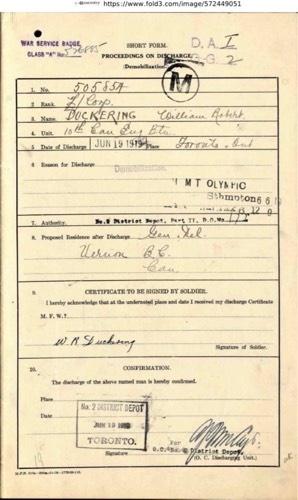 https://www.fold3.com/image/572449051
WAR SERVICE BADGE,
CLASS "A" No.
SHORT FORM.
PROCEEDINGS ON DISCHARGE.
(Demobilization)
D. A. I
2
M
1. No. 505854
2. Rank. L/Corp.
3. Name. DUCKERING William Robert.
4. Unit. 10th Can Eng Btn.
5. Date of Discharge JUN 19 1919 Place Toronto. Ont
6. Reason for Discharge
Demobilization.
H M T OLYMPIC
Sthmpton
7. Authority. No. 2 District Depot, Part II. D.O. No
8. Proposed Residence after Discharge Gen. Del.
Vernon B.C.
Can.
9. CERTIFICATE TO BE SIGNED BY SOLDIER.
I hereby acknowledge that at the undernoted place and date I received my discharge Certificate
M. F. W.
W. R. Duckering
Signature of Soldier.
10. CONFIRMATION.
The discharge of the above named man is hereby confirmed.
Place
No. 2 DISTRICT DEPOT
Date
JUN 19 1919
TORONTO.
Signature
For
O.C. No. 2 District Depot,
(O. C. Discharging Unit.)